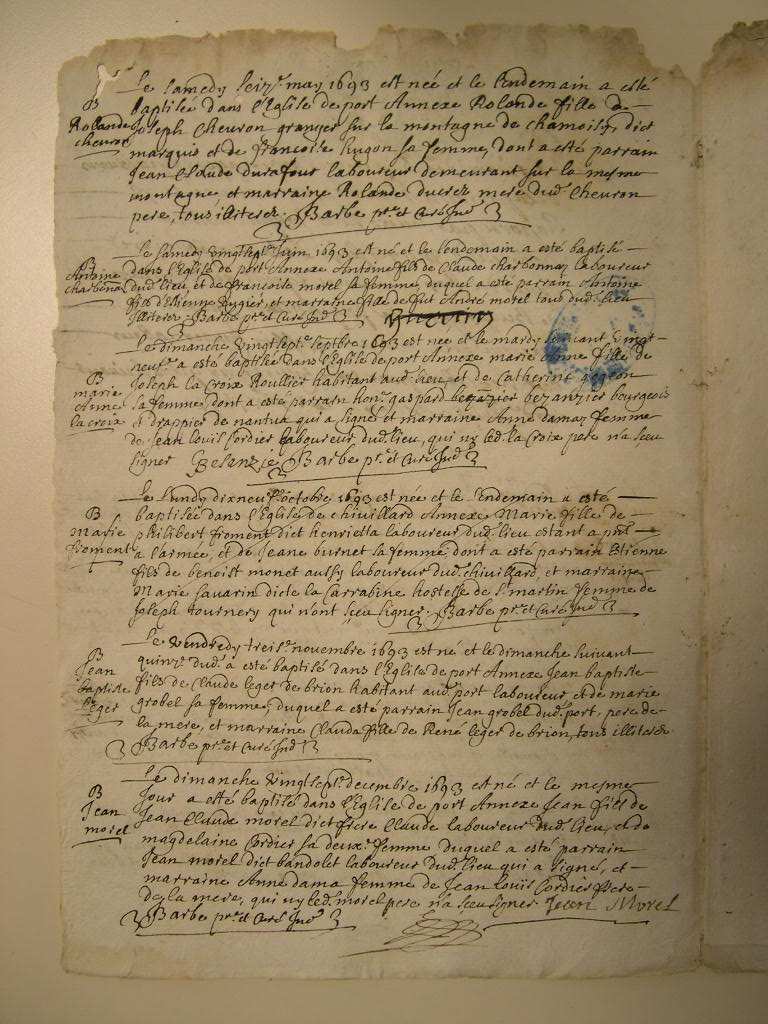 B
Rolande
chevron
Le Samedy seiz.e may 1693 est née et le lendemain a esté
baptisée dans l'Eglise de port Annexe Rolande fille de
Joseph Chevron granger sur la montagne de chamoise, dict
marquis et de francoise hugon sa femme, dont a esté parrain
Jean Claude Durafour laboureur demeurant sur la mesme
montagne et marraine Rolande ducrez mere dud. Chevron
pere, tous illiterez. Barbe pr. et Curé Ind.
B
Antoine
charbona
Le Samedy vingtsept.e Juin 1693 est né et le lendemain a esté baptisé
dans l'Eglise de port Annexe Antoine fils de Claude charbonnaz laboureur
dud. lieu, et de francoise morel sa femme, duquel a esté parrain Antoine
fils d'Etienne et marraine fille de fut André morel tous dud. lieu
illiterez. Barbe pr. et Curé Ind.
B
marie
Anne
la croix
Le dimanche vingtsept.e septbre 1693 est née et le mardy suivant vingt
neuf.e a esté baptisée dans l'Eglise de port Annexe marie Anne fille de
Joseph la croix Roullier habitant aud. lieu, et de Catherine
sa femme, dont a esté parrain hon. gaspard bezanzier bourgeois
& drappier de nantua qui a signé et marraine Anne damaz femme
de Jean Louis Cordier laboureur dud. lieu, qui ny led. la Croix pere n'a sçeu
signer Besanzie Barbe pr. et Curé Ind.
B
Marie
froment
Le Lundy dixneuf.e octobre 1693 est née et le lendemain a esté
baptisée dans l'Eglise de chivillard Annexe Marie fille de
philibert froment dict henrietta laboureur dud. lieu estant a pnt
a l'armée, et de Jeane burnet sa femme dont a esté parrain Etienne
fils de benoist monet aussy laboureur dud. chivillard, et marraine
Marie savarin dicte la Carrabine hostesse de St. martin femme de
Joseph tournery qui n'ont sçeu signer. Barbe pr. et Curé Ind.
B
Jean
baptiste
leger
Le Vendredy treis.e novembre 1693 est né et le dimanche suivant
quinz.e dud. a esté baptisé dans l'Eglise de port Annexe Jean baptiste
fils de Claude leger de brion habitant aud. port laboureur, et de marie
grobel sa femme, duquel a esté parrain Jean grobel dud. port, pere de
la mere, et marraine Clauda fille de René leger de brion, tous illiterez.
Barbe pr. et Curé Ind.
B
Jean
morel
Le dimanche vingtsept.e decembre 1693 est né et le mesme
Jour a esté baptisé dans l'Eglise de port Annexe Jean fils de
Jean Claude morel dict frere Claude laboureur dud. lieu, et de
magdelaine Cordier sa deux.e femme duquel a esté parrain
Jean morel dict bandolet laboureur dud. lieu qui a signé, et
marraine Anne dama femme de Jean Louis Cordier frere
de la mere, qui ny led. morel pere n'a sçeu signer Jean Morel
Barbe pr. et Curé Ind.